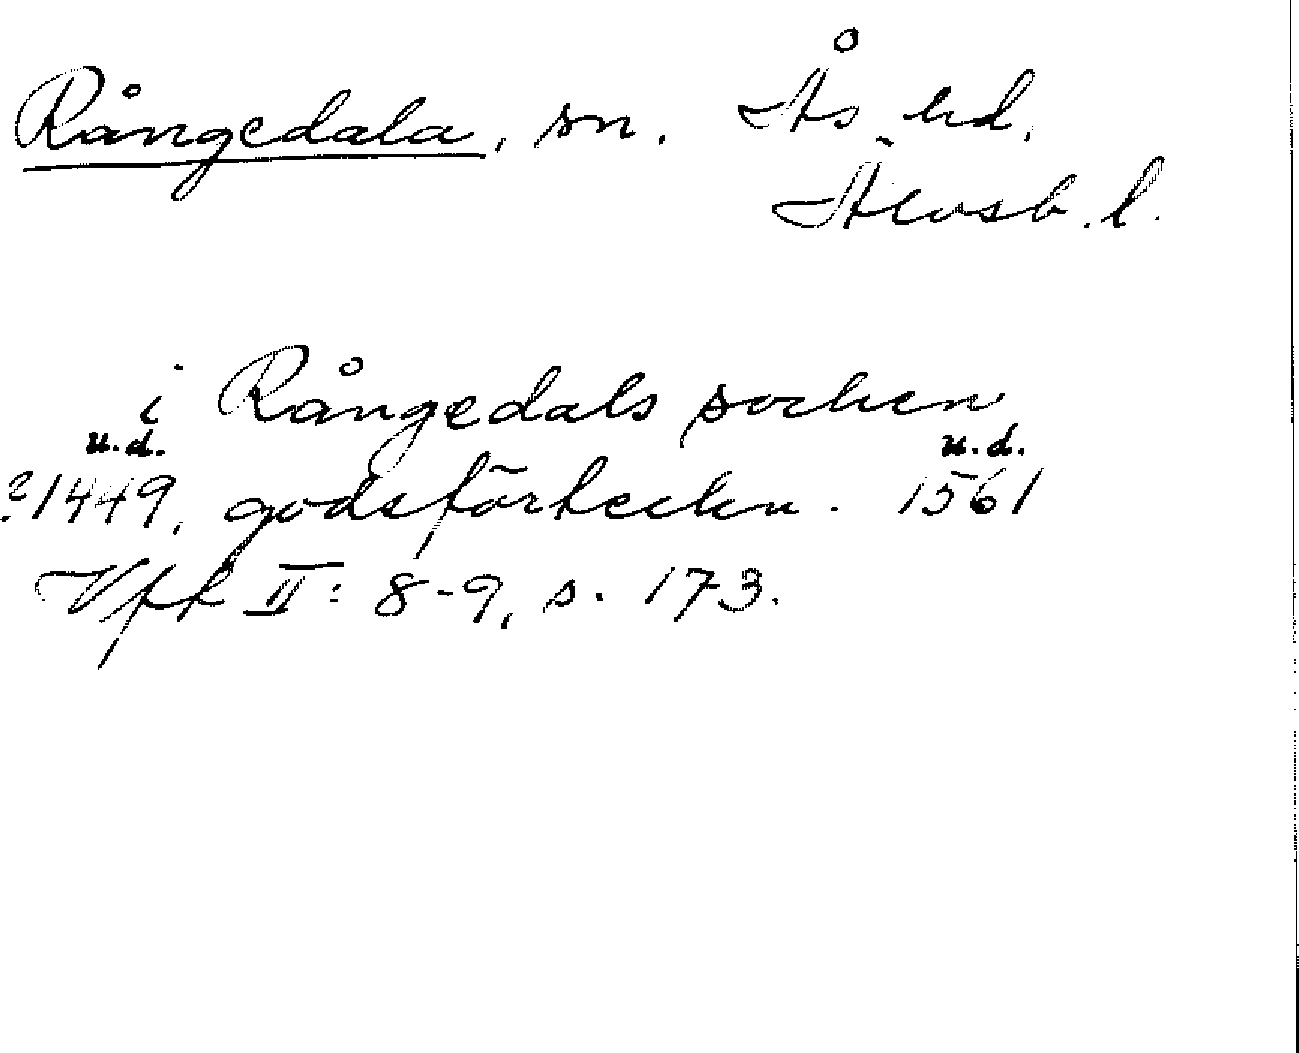 Rångedala, sn. Ås hd.
Älvsb. l.
i Rångedals sochen
u.d. u.d.
?1449, godsförteckn. 1561
Vfk II: 8-9, s. 173.